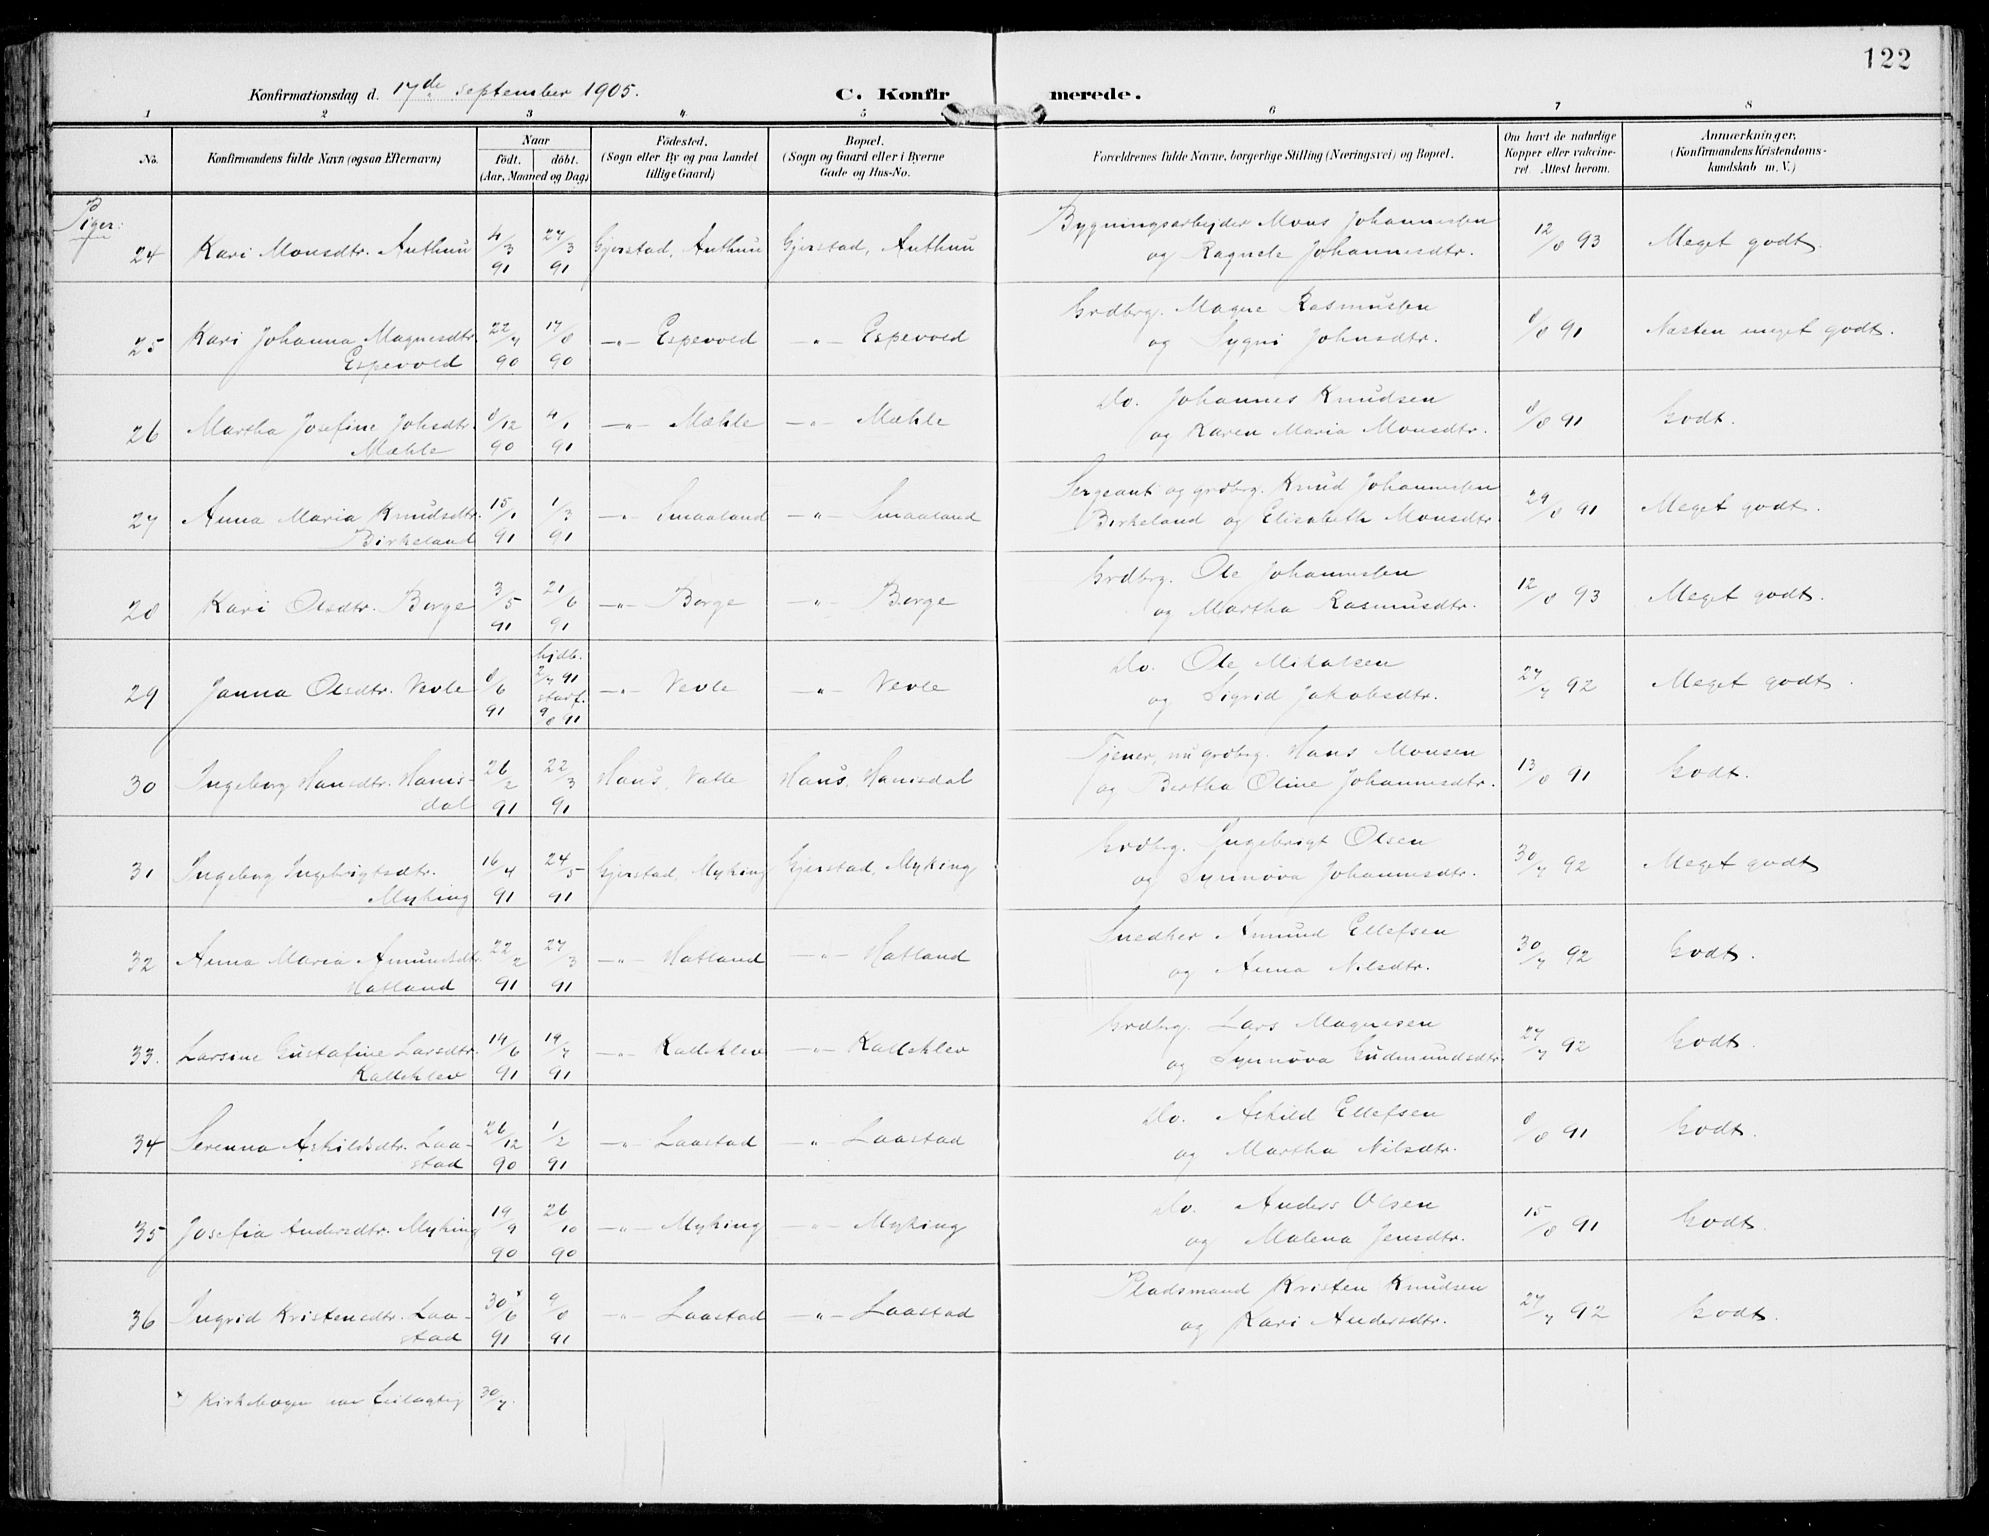 122
Konfirmationsdag d. 17de september 1905.
C. Konfirmerede.
1 2 3 4 5 6 7 8
No.
Konfirmandens fulde Navn (ogsaa Efternavn)
Naar
födt. döbt.
(Aar, Maaned og Dag)
Födested.
(Sogn eller By og paa Landet
tillige Gaard)
Bopæl.
(Sogn og Gaard eller i Byerne
Gade og Hus-No.
Forældrenes fulde Navne, borgerlige Stilling (Næringsvei) og Bopæl.
Om havt de naturlige
Kopper eller vakcine-
ret Attest herom.
Anmærkninger,
(Konfirmandens Kristendoms-
kundskab m. V.)
Piger:
24 Kari Monsdtr. Anthun 4/3 91 27/3 91 Gjerstad, Anthun Gjerstad, Anthun Bygningsarbejder Mons Johannessen
og Ragnele Johannesdtr. 12/8 93 Meget godt.
25 Kari Johanna Magnesdtr. 22/7 90 17/8 90 —"— Espevold —"— Espevold Grdbrg. Magne Rasmussen
Espevold og Sygni Johnsdtr. 8/8 91 Næsten meget godt.
26 Martha Josefine Johsdtr. 8/12 90 4/1 91 —"— Mæhle —"— Mæhle Do. Johannes Knudsen
Mæhle og Karen Maria Monsdtr. 8/8 91 Godt.
27 Anna Maria Knudsdtr. 15/1 91 1/3 91 —"— Smaaland —"— Smaaland Sergeant og grdbrg. Knud Johannessen
Birkeland Birkeland og Elisabeth Monsdtr. 29/8 91 Meget godt.
28 Kari Olsdtr. Borge 3/5 91 21/6 91 —"— Borge —"— Borge Grdbrg. Ole Johannessen
og Martha Rasmusdtr. 12/8 93 Meget godt.
29 Janna Olsdtr. Vevle 8/6 91 hjdb. 2/7 91 stadf. 9/8 91 —"— Vevle " Vevle Do. Ole Mikalsen
og Sigrid Jakobsdtr. 27/7 92 Meget godt.
30 Ingeborg Hansdtr. Hams- 26/2 91 22/3 91 Haus, Valle Haus, Hamsdal Tjener, nu grdbrg. Hans Monsen
dal og Bertha Oline Johannesdtr. 13/8 91 Godt.
31 Ingeborg Ingebrigtsdtr. 16/4 91 24/5 91 Gjerstad, Myking Gjerstad, Myking Grdbrg. Ingebrigt Olsen
Myking og Synnøva Johannesdtr. 30/7 92 Meget godt
32 Anna Maria Amundsdtr. 22/2 91 27/3 91 —"— Hatland —"— Hatland Snedker Amund Ellefsen
Hatland og Anna Nilsdtr. 30/7 92 Godt.
33. Larsine Gustafine Larsdtr. 19/6 91 19/7 91 —"— Kalleklev —"— Kalleklev Grdbrg. Lars Magnesen
Kalleklev og Synnøva Gudmundsdtr. 27/7 92 Godt.
34 Serenna Askildsdtr. Laa- 26/12 90 1/2 91 —"— Laastad —"— Laastad Do. Askild Ellefsen
stad og Martha Nilsdtr. 8/8 91 Godt.
35 Josefia Andersdtr. Myking 19/9 90 26/10 90 —"— Myking —"— Myking Do. Anders Olsen
og Malena Jensdtr. 15/8 91 Godt.
36 Ingrid Kristensdtr. Laa- 30x/6 91 9/8 91 —"— Laastad —"— Laastad Pladsmand Kristen Knudsen
stad og Kari Andersdtr. 27/7 92 Godt.
x) Kirkebogen har 30/7.